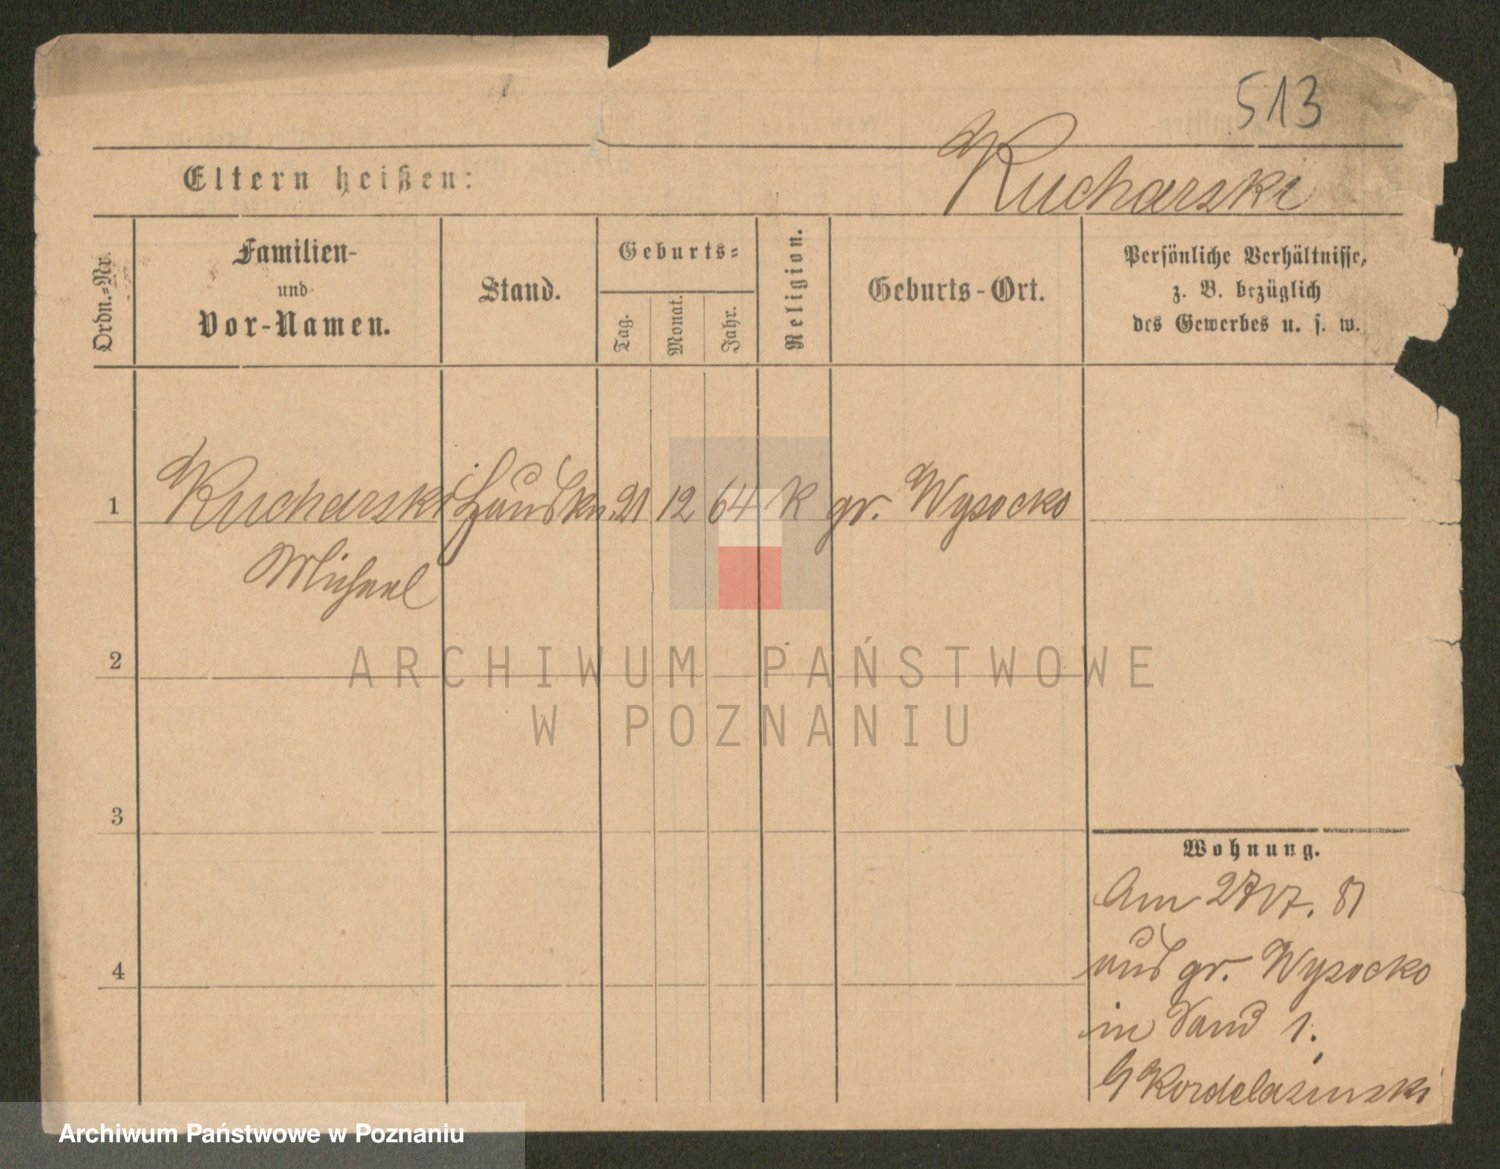 513
Kucharski
Eltern heißen:
Ordn.-Nr.
Familien-
und
Vor-Namen.
Stand.
Geburts-
Tag.
Monat.
Jahr.
Religion.
Geburts-Ort.
Persönliche Verhältnisse,
z. B. bezüglich
des Gewerbes u. s. w.
1 Kucharski Hauskn. 21 12 64 K gr. Wysocko
Michael
2
3
4
ARCHIWUM PAŃSTWOWE
W POZNANIU
Wohnung.
Am 81
aus gr. Wysocko
in Sand 1.
Archiwum Państwowe w Poznaniu